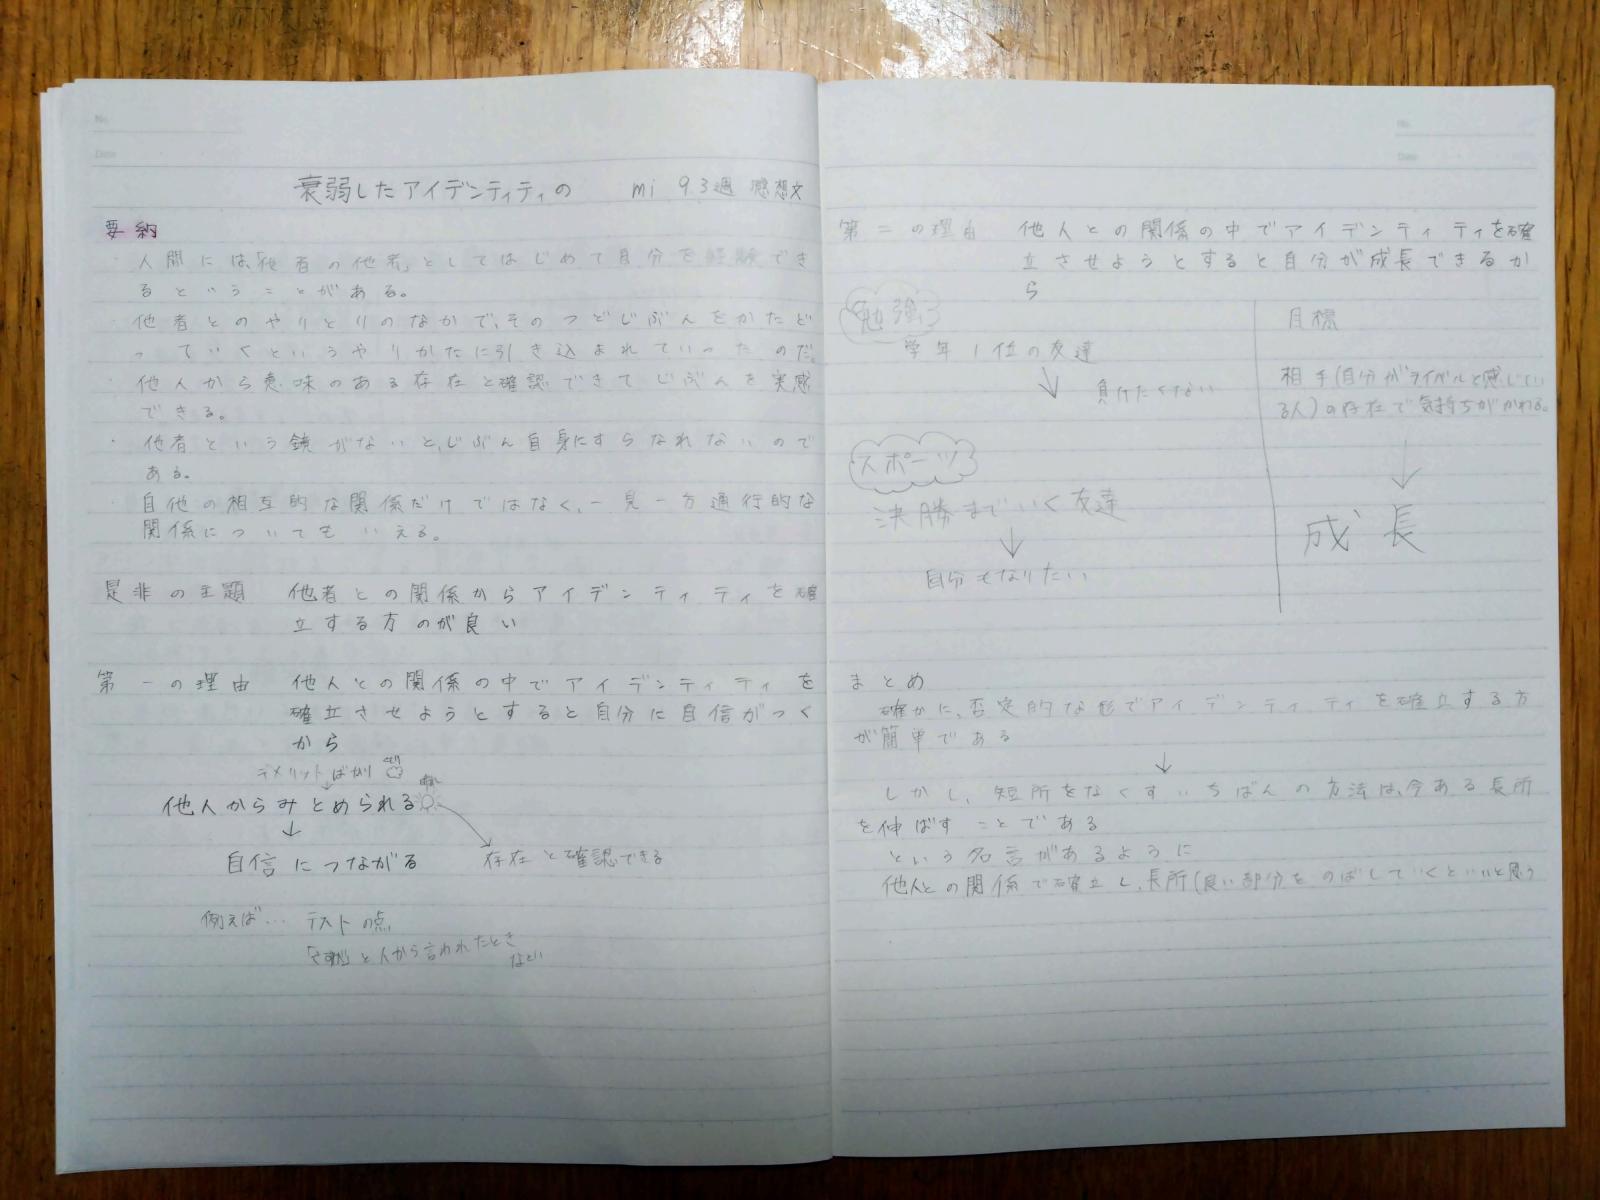 No.
Date
衰弱したアイデンティティの mi 9.3週 感想文
要約
・人間には、「他者の他者」としてはじめて自分を経験でき
るということがある。
・他者とのやりとりのなかで、そのつどじぶんをかたど
っていくというやりかたに引き込まれていったのだ。
・他人から意味のある存在と確認できてじぶんを実感
できる。
・他者という鏡がないと、じぶん自身にすらなれないので
ある。
・自他の相互的な関係だけではなく、一見一方通行的な
関係についてもいえる。
是非の主題 他者との関係からアイデンティティを確
立する方のが良い
第一の理由 他人との関係の中でアイデンティティを
確立させようとすると自分に自信がつく
から
デメリットばかり
他人からみとめられる
↓
自信につながる 存在と確認できる
例えば… テストの点
と人から言われたとき
など
No.
Date
第二の理由 他人との関係の中でアイデンティティを確
立させようとすると自分が成長できるか
ら
勉強
学年1位の友達
↓ 負けたくない
スポーツ
決勝までいく友達
↓
自分もなりたい
目標
相手(自分がライバルと感じてい
る人)の存在で気持ちがかわる。
↓
成長
まとめ
確かに、否定的な形でアイデンティティを確立する方
が簡単である
↓
しかし、短所をなくすいちばんの方法は、今ある長所
を伸ばすことである
という名言があるように
他人との関係で確立し、長所(良い部分をのばしていくといいと思う